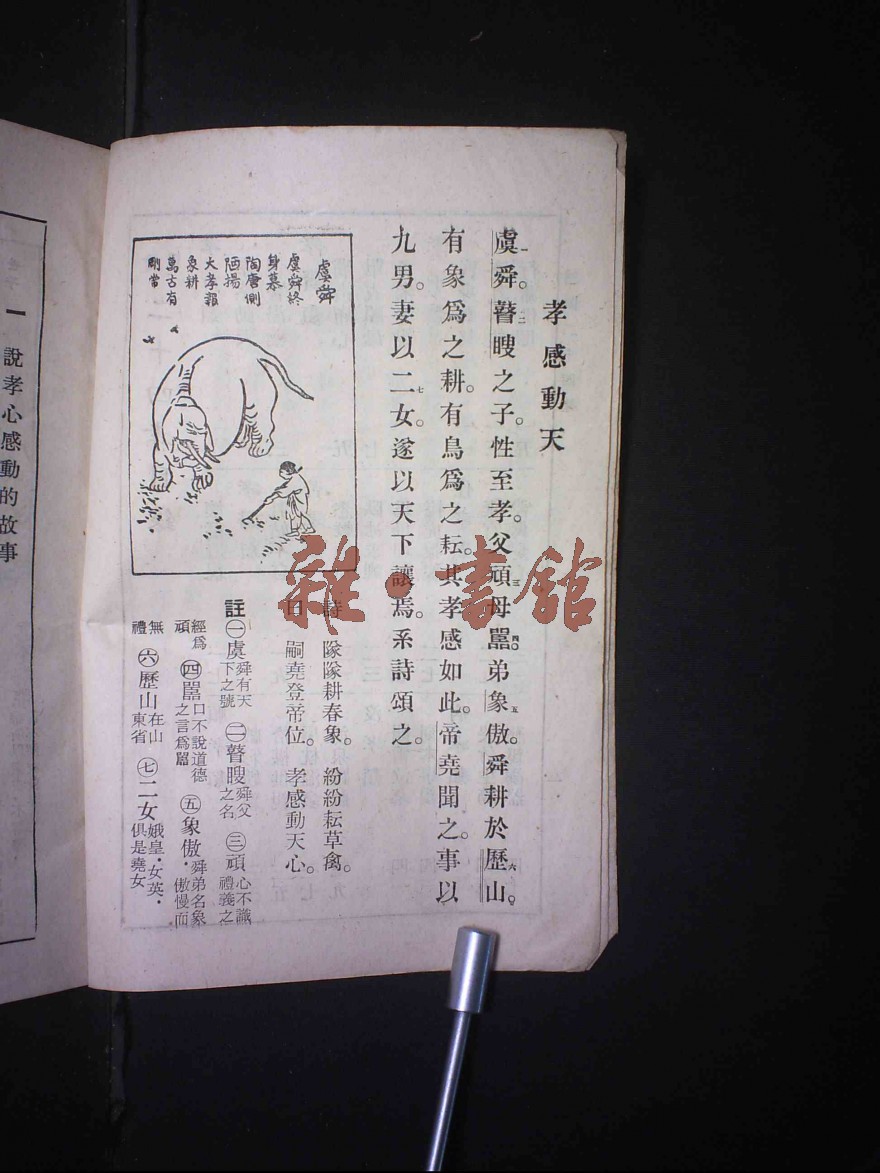 孝感動天
虞舜。瞽瞍之子。性至孝。父頑母嚚。弟象傲。舜耕於歷山。
有象爲之耕。有鳥爲之耘。其孝感如此。帝堯聞之。事以
九男。妻以二女。遂以天下讓焉。系詩頌之。
詩 隊隊耕春象。 紛紛耘草禽。
曰 嗣堯登帝位。 孝感動天心。
註 ㊀虞 舜有天下之號 ㊁瞽瞍 舜父之名 ㊂頑 心不識禮義之
經爲頑 ㊃嚚 口不說道德之言爲嚚 ㊄象傲 舜弟名象・傲慢而
無禮 ㊅歷山 在山東省 ㊆二女 娥皇・女英・俱是堯女
虞舜
虞舜終
身慕
陶唐側
陋揚
大孝報
象耕
萬古有
剛常
一 說孝心感動的故事
雜・書館